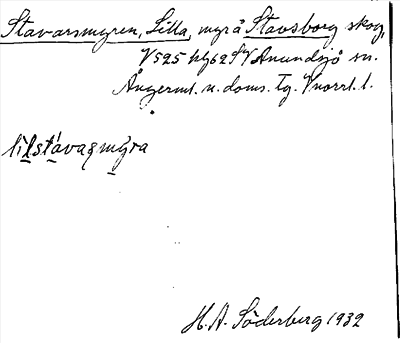 Stavarsmyren, Lilla, myr å Stavsborg skog,
V 525 hg 62 SV Anundsjö sn.
Ångerml. n. doms. Tg. Vnorrl. l.
lìlstávaꞩmýra
H. A. Söderberg 1932